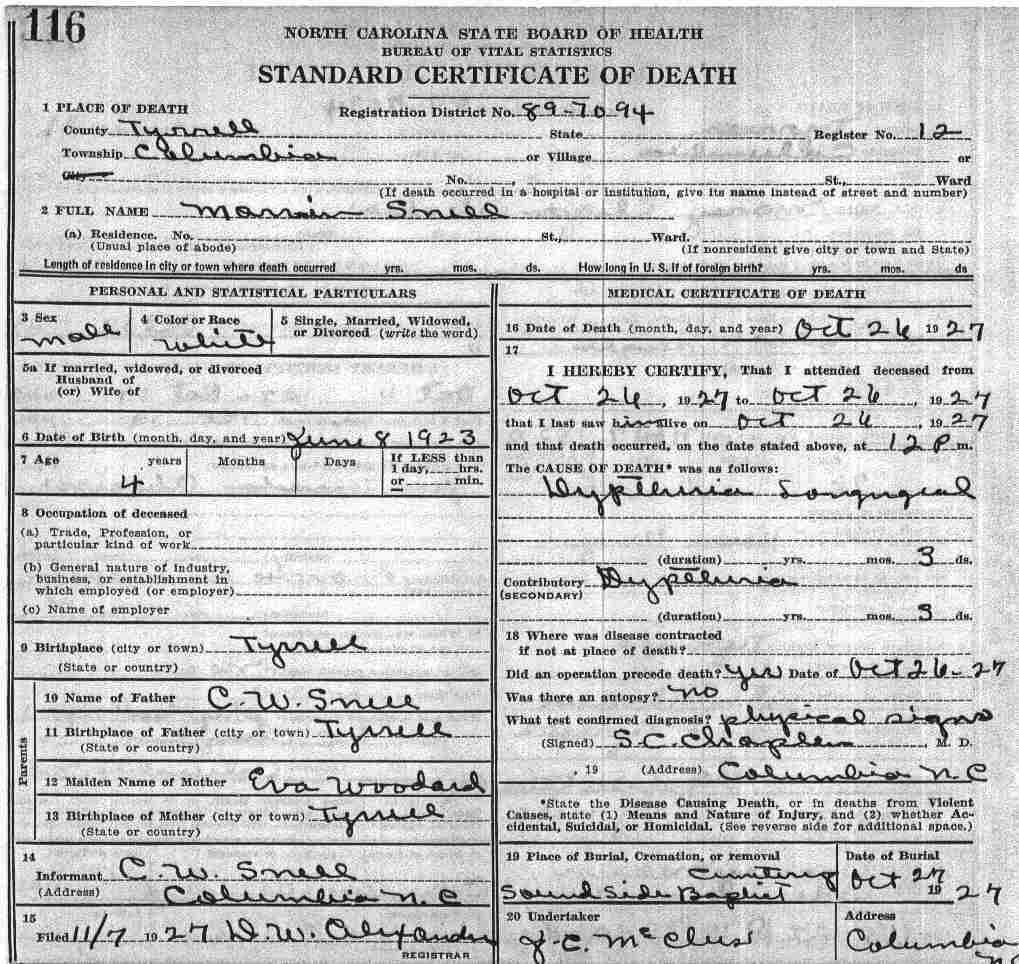 116
NORTH CAROLINA STATE BOARD OF HEALTH
BUREAU OF VITAL STATISTICS
STANDARD CERTIFICATE OF DEATH
1 PLACE OF DEATH Registration District No. 89-7094
County Tyrrell State Register No. 12
Township Columbia or Village or
City No. , St., Ward
(If death occurred in a hospital or institution, give its name instead of street and number)
2 FULL NAME Snell
(a) Residence. No. St., Ward.
(Usual place of abode) (If nonresident give city or town and State)
Length of residence in city or town where death occurred yrs. mos. ds. How long in U. S. if of foreign birth? yrs. mos. ds
PERSONAL AND STATISTICAL PARTICULARS
3 Sex
male
4 Color or Race
white
5 Single, Married, Widowed,
or Divorced (write the word)
5a If married, widowed, or divorced
Husband of
(or) Wife of
6 Date of Birth (month, day, and year) June 8 1923
7 Age years Months Days If LESS than
1 day, hrs.
or min.
4
8 Occupation of deceased
(a) Trade, Profession, or
particular kind of work
(b) General nature of industry,
business, or establishment in
which employed (or employer)
(c) Name of employer
9 Birthplace (city or town) Tyrrell
(State or country)
Parents
10 Name of Father C. W. Snell
11 Birthplace of Father (city or town) Tyrrell
(State or country)
12 Maiden Name of Mother Eva Woodard
13 Birthplace of Mother (city or town) Tyrrell
(State or country)
14
Informant C. W. Snell
(Address) Columbia N. C
15
Filed 11/7 1927 D. W. Alexander
REGISTRAR
MEDICAL CERTIFICATE OF DEATH
16 Date of Death (month, day, and year) Oct 26 1927
17
I HEREBY CERTIFY, That I attended deceased from
Oct 26, 1927 to Oct 26, 1927
that I last saw him alive on Oct 26, 1927
and that death occurred, on the date stated above, at 12 P m.
The CAUSE OF DEATH* was as follows:
Dyptheria
(duration) yrs. mos. 3 ds.
Contributory Dyptheria
(SECONDARY)
(duration) yrs. mos. 3 ds.
18 Where was disease contracted
if not at place of death?
Did an operation precede death? yes Date of Oct 26-27
Was there an autopsy? no
What test confirmed diagnosis? physical signs
(Signed) S. C. Chaplin, M. D.
, 19 (Address) Columbia N C
*State the Disease Causing Death, or in deaths from Violent
Causes, state (1) Means and Nature of Injury, and (2) whether Ac-
cidental, Suicidal, or Homicidal. (See reverse side for additional space.)
19 Place of Burial, Cremation, or removal
Sound Side Baptist
Date of Burial
Oct 27 1927
20 Undertaker
J. C. McClus
Address
Columbia
NC